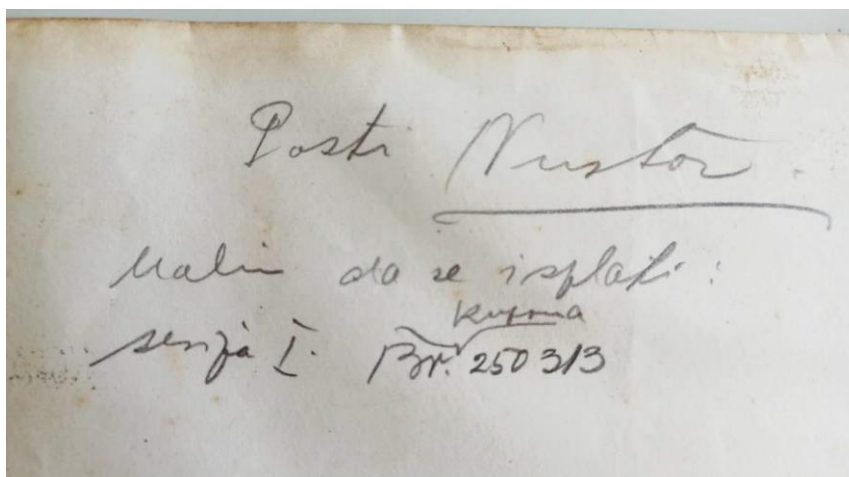 Posti Nuštar.
Molim da se isplati:
kupona
serija I. Br. 250313